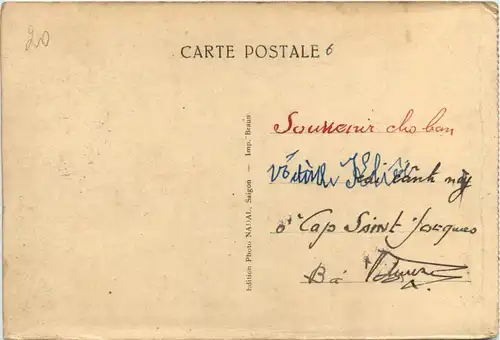 20
CARTE POSTALE 6
Edition Photo NADAL, Saigon — Imp. Braun
Souvenir cho ban
cảnh này
ở Cap Saint Jacques
Bà